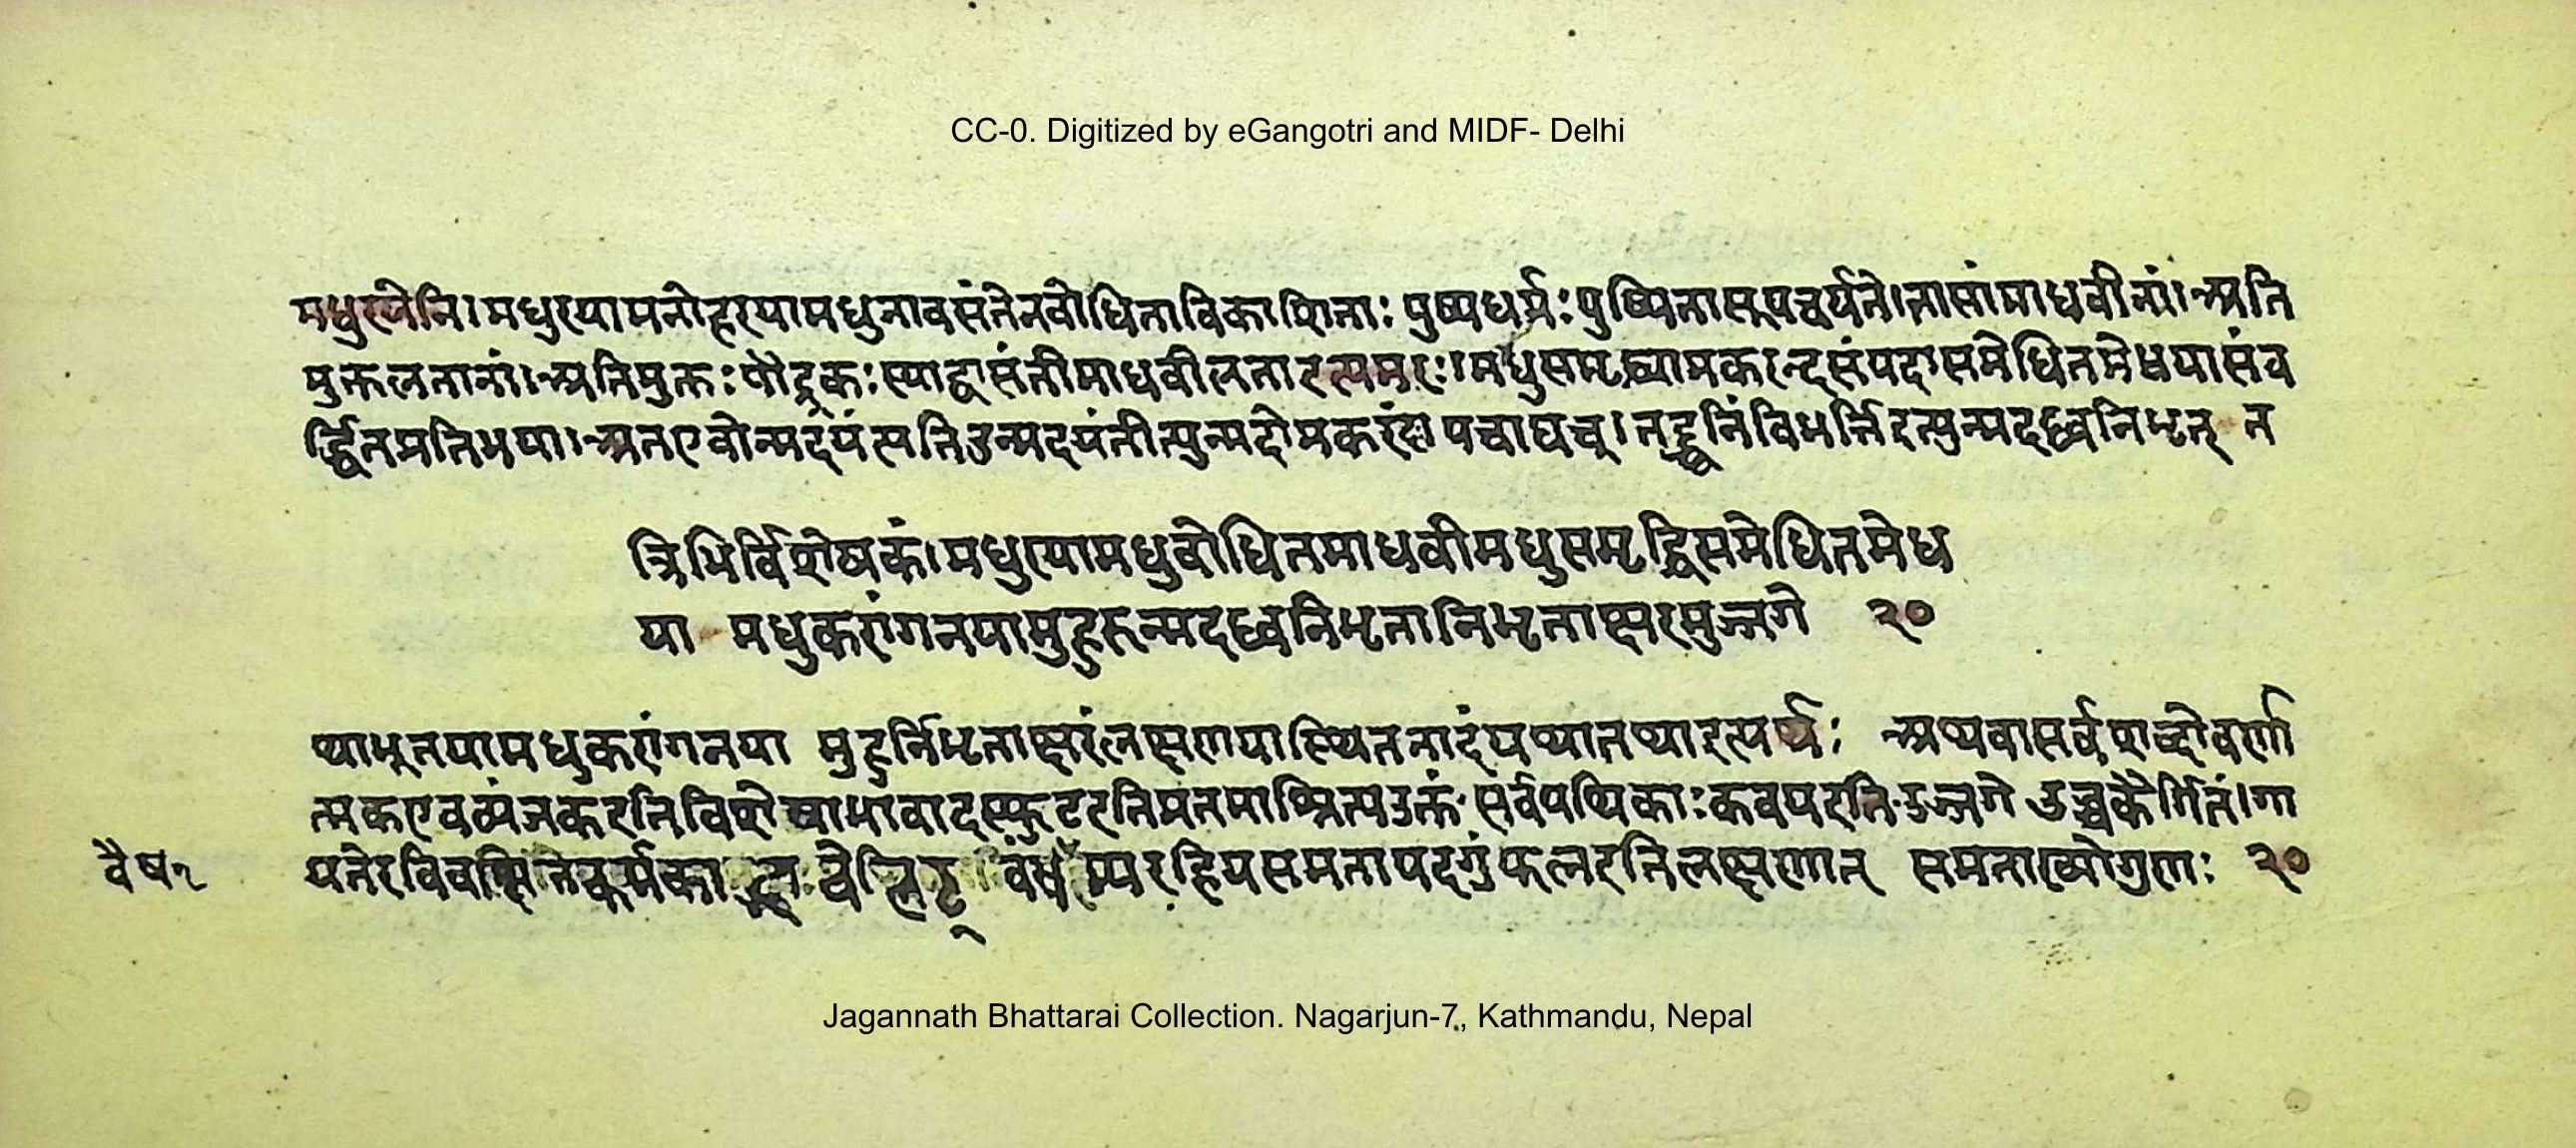 CC-0. Digitized by eGangotri and MIDF- Delhi
मधुरयेति। मधुरयामनोहरयामधुनावसंतेनबोधिताविकाशिताः पुष्पधर्मः पुष्पितासूपचर्यते।तासांमाधवीनां। अति
मुक्तलतानां। अतिमुक्तः पौंड्रकः स्याद्वासंतीमाधवीलताइत्यमरः। मधुसमृद्ध्यामकरन्दसंपदासमेधितमेधयासंव
र्द्धितप्रतिभया। अतएवोन्मदयंत्यतिउन्मदयंतीत्युन्मदो पचाद्यच्।तद्ध्वनिंविभर्त्तिइत्युन्मदध्वनिभृत् त
त्रिभिर्विशेषकं। मधुरयामधुबोधितमाधवीमधुसमृद्धिसमेधितमेध
या मधुकरांगनयामुहुरुन्मदध्वनिभृतानिभृताक्षरमुज्जगे २०
थाभूतयामधुकरांगनया मुहुर्निभृताक्षरंलक्षणयास्थितनादंयथातथाइत्यर्थः अथवासर्वशब्दोवर्णा
त्मकएवव्यंजकइतिविशेषाभावादस्फुटइतिमतमाश्रित्यउक्तं सर्वपथिकाःकवयइति उज्जगे उच्चकैर्गितं। गा
यतेरविवक्षितेकर्मका समतापदगुंफलइतिलक्षणात् समताख्योगुणः २०
वैष१
Jagannath Bhattarai Collection. Nagarjun-7, Kathmandu, Nepal